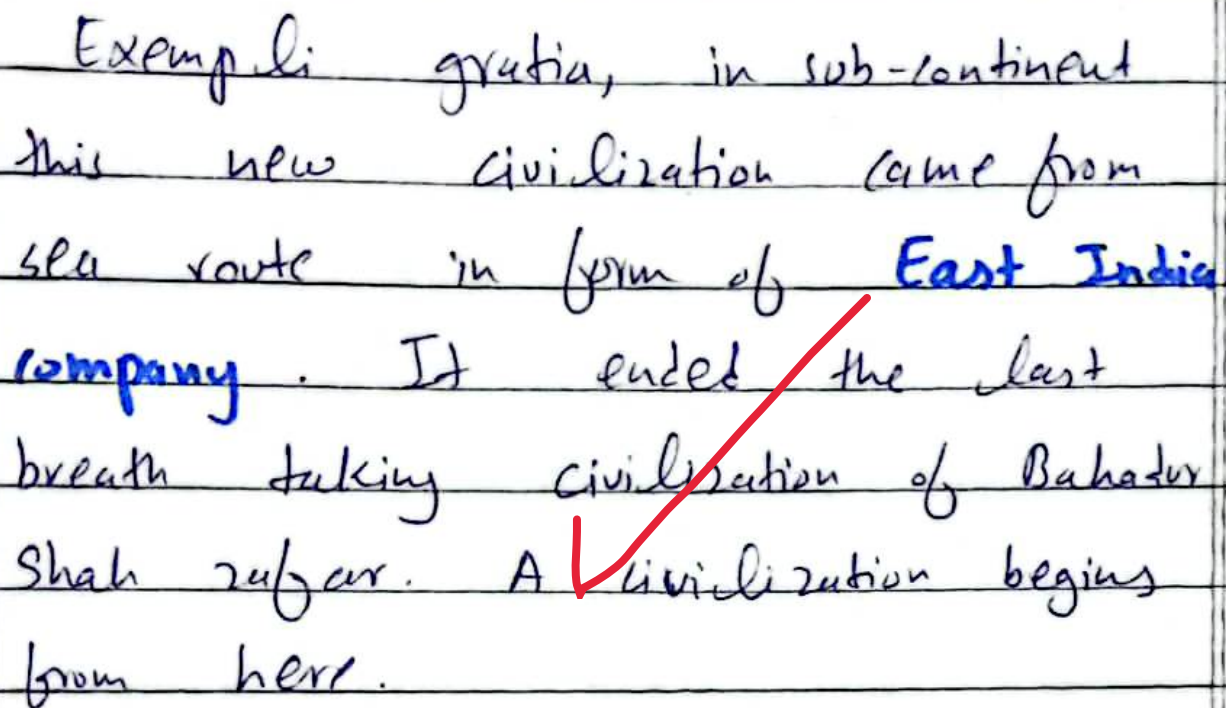 Exempli gratia, in sub-continent
this new civilization came from
sea route in form of East India
company. It ended the last
breath taking civilization of Bahadur
Shah zafar. A civilization begins
from here.